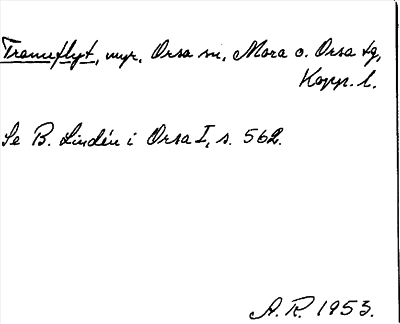 Tranuflyt, myr, Orsa sn, Mora o. Orsa tg,
Kopp. l.
Se B. Lindén i Orsa I, s. 562.
A.R. 1953.